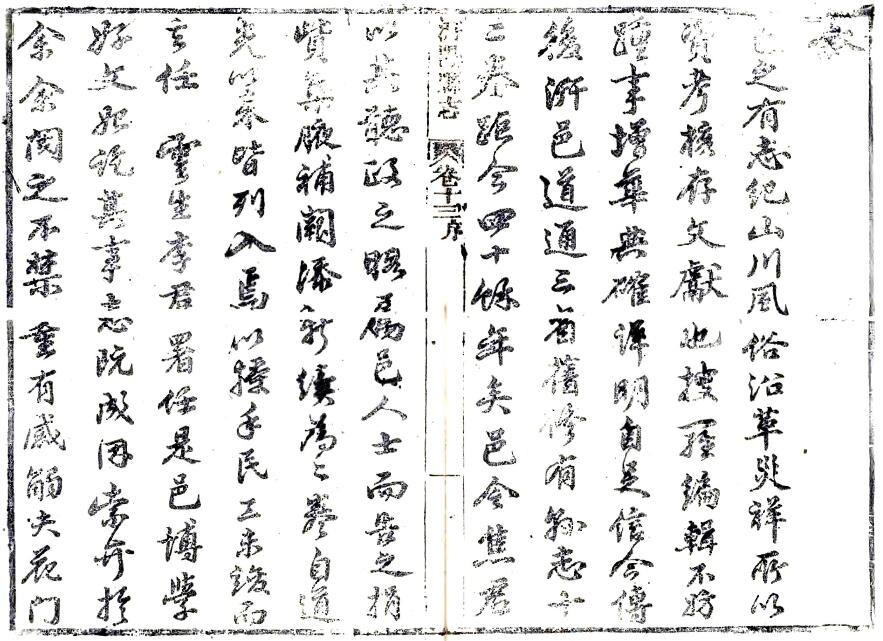 敘
邑之有志紀山川風俗沿革災祥所以
資考核存文獻也搜羅編輯不妨
踵事增華典確詳明自足信今傳
後汧邑道通三省舊修有縣志十
二卷距今四十餘年矣邑令焦君
汧陽縣志 卷十三序
以其聽政之暇乃偕邑人士而之捐
貲集腋補闕添新續為二卷自道
光以來皆列入焉以授手民工未竣而
去任 雲生李君署任是邑博學
好文始訖其事志既成因索弁於
余余閱之不禁重有感觸夫花門